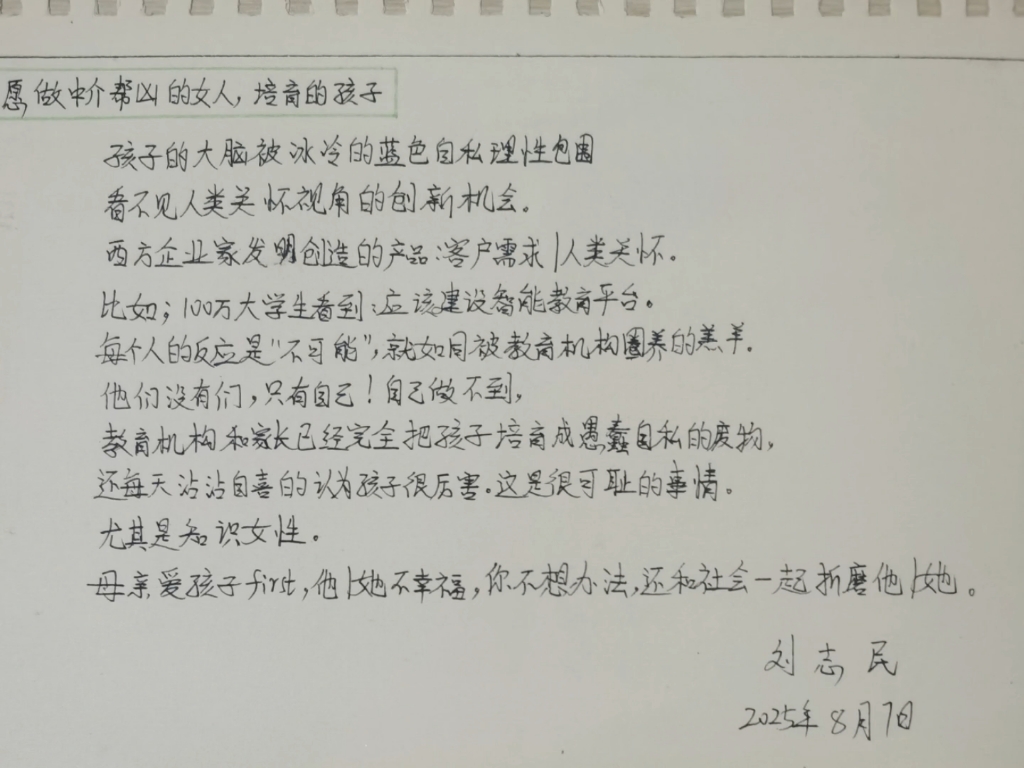 愿做中介帮凶的女人，培育的孩子
孩子的大脑被冰冷的蓝色自私理性包围
看不见人类关怀视角的创新机会。
西方企业家发明创造的产品：客户需求/人类关怀。
比如；100万大学生看到：应该建设智能教育平台。
每个人的反应是“不可能”，就如同被教育机构圈养的羔羊.
他们没有们，只有自己！自己做不到，
教育机构和家长已经完全把孩子培育成愚蠢自私的废物，
还每天沾沾自喜的认为孩子很厉害.这是很可耻的事情。
尤其是知识女性。
母亲爱孩子first，他/她不幸福，你不想办法，还和社会一起折磨他/她。
刘志民
2025年8月7日